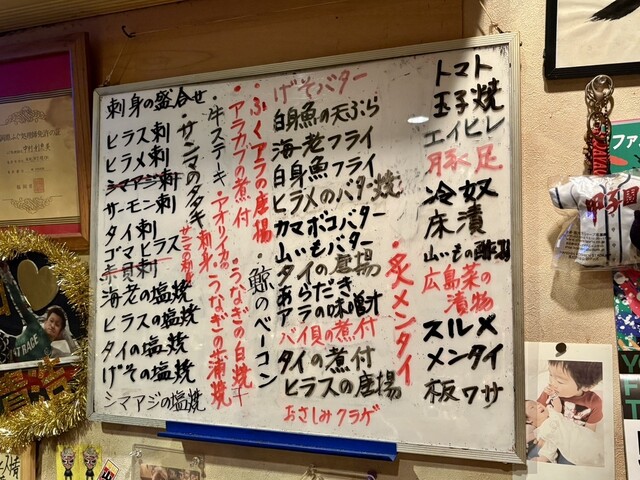 刺身の盛合せ
ヒラス刺
ヒラメ刺
シマアジ刺
サーモン刺
タイ刺
ゴマヒラス
赤貝刺
海老の塩焼
ヒラスの塩焼
タイの塩焼
げその塩焼
シマアジの塩焼
・サンマのタタキ
サンマの刺
・牛ステーキ
・アオリイカの刺身
・うなぎの蒲焼
・アラカブの煮付
・うなぎの白焼
・ふくアラの唐揚
・鯨のベーコン
げそバター
白身魚の天ぷら
海老フライ
白身魚フライ
ヒラメのバター焼
カマボコバター
山いもバター
タイの唐揚
あらだき
アラの味噌汁
バイ貝の煮付
タイの煮付
ヒラスの唐揚
おさしみクラゲ
・炙メンタイ
トマト
玉子焼
エイヒレ
豚足
冷奴
床漬
山いもの
広島菜の
漬物
スルメ
メンタイ
板ワサ
甲子園